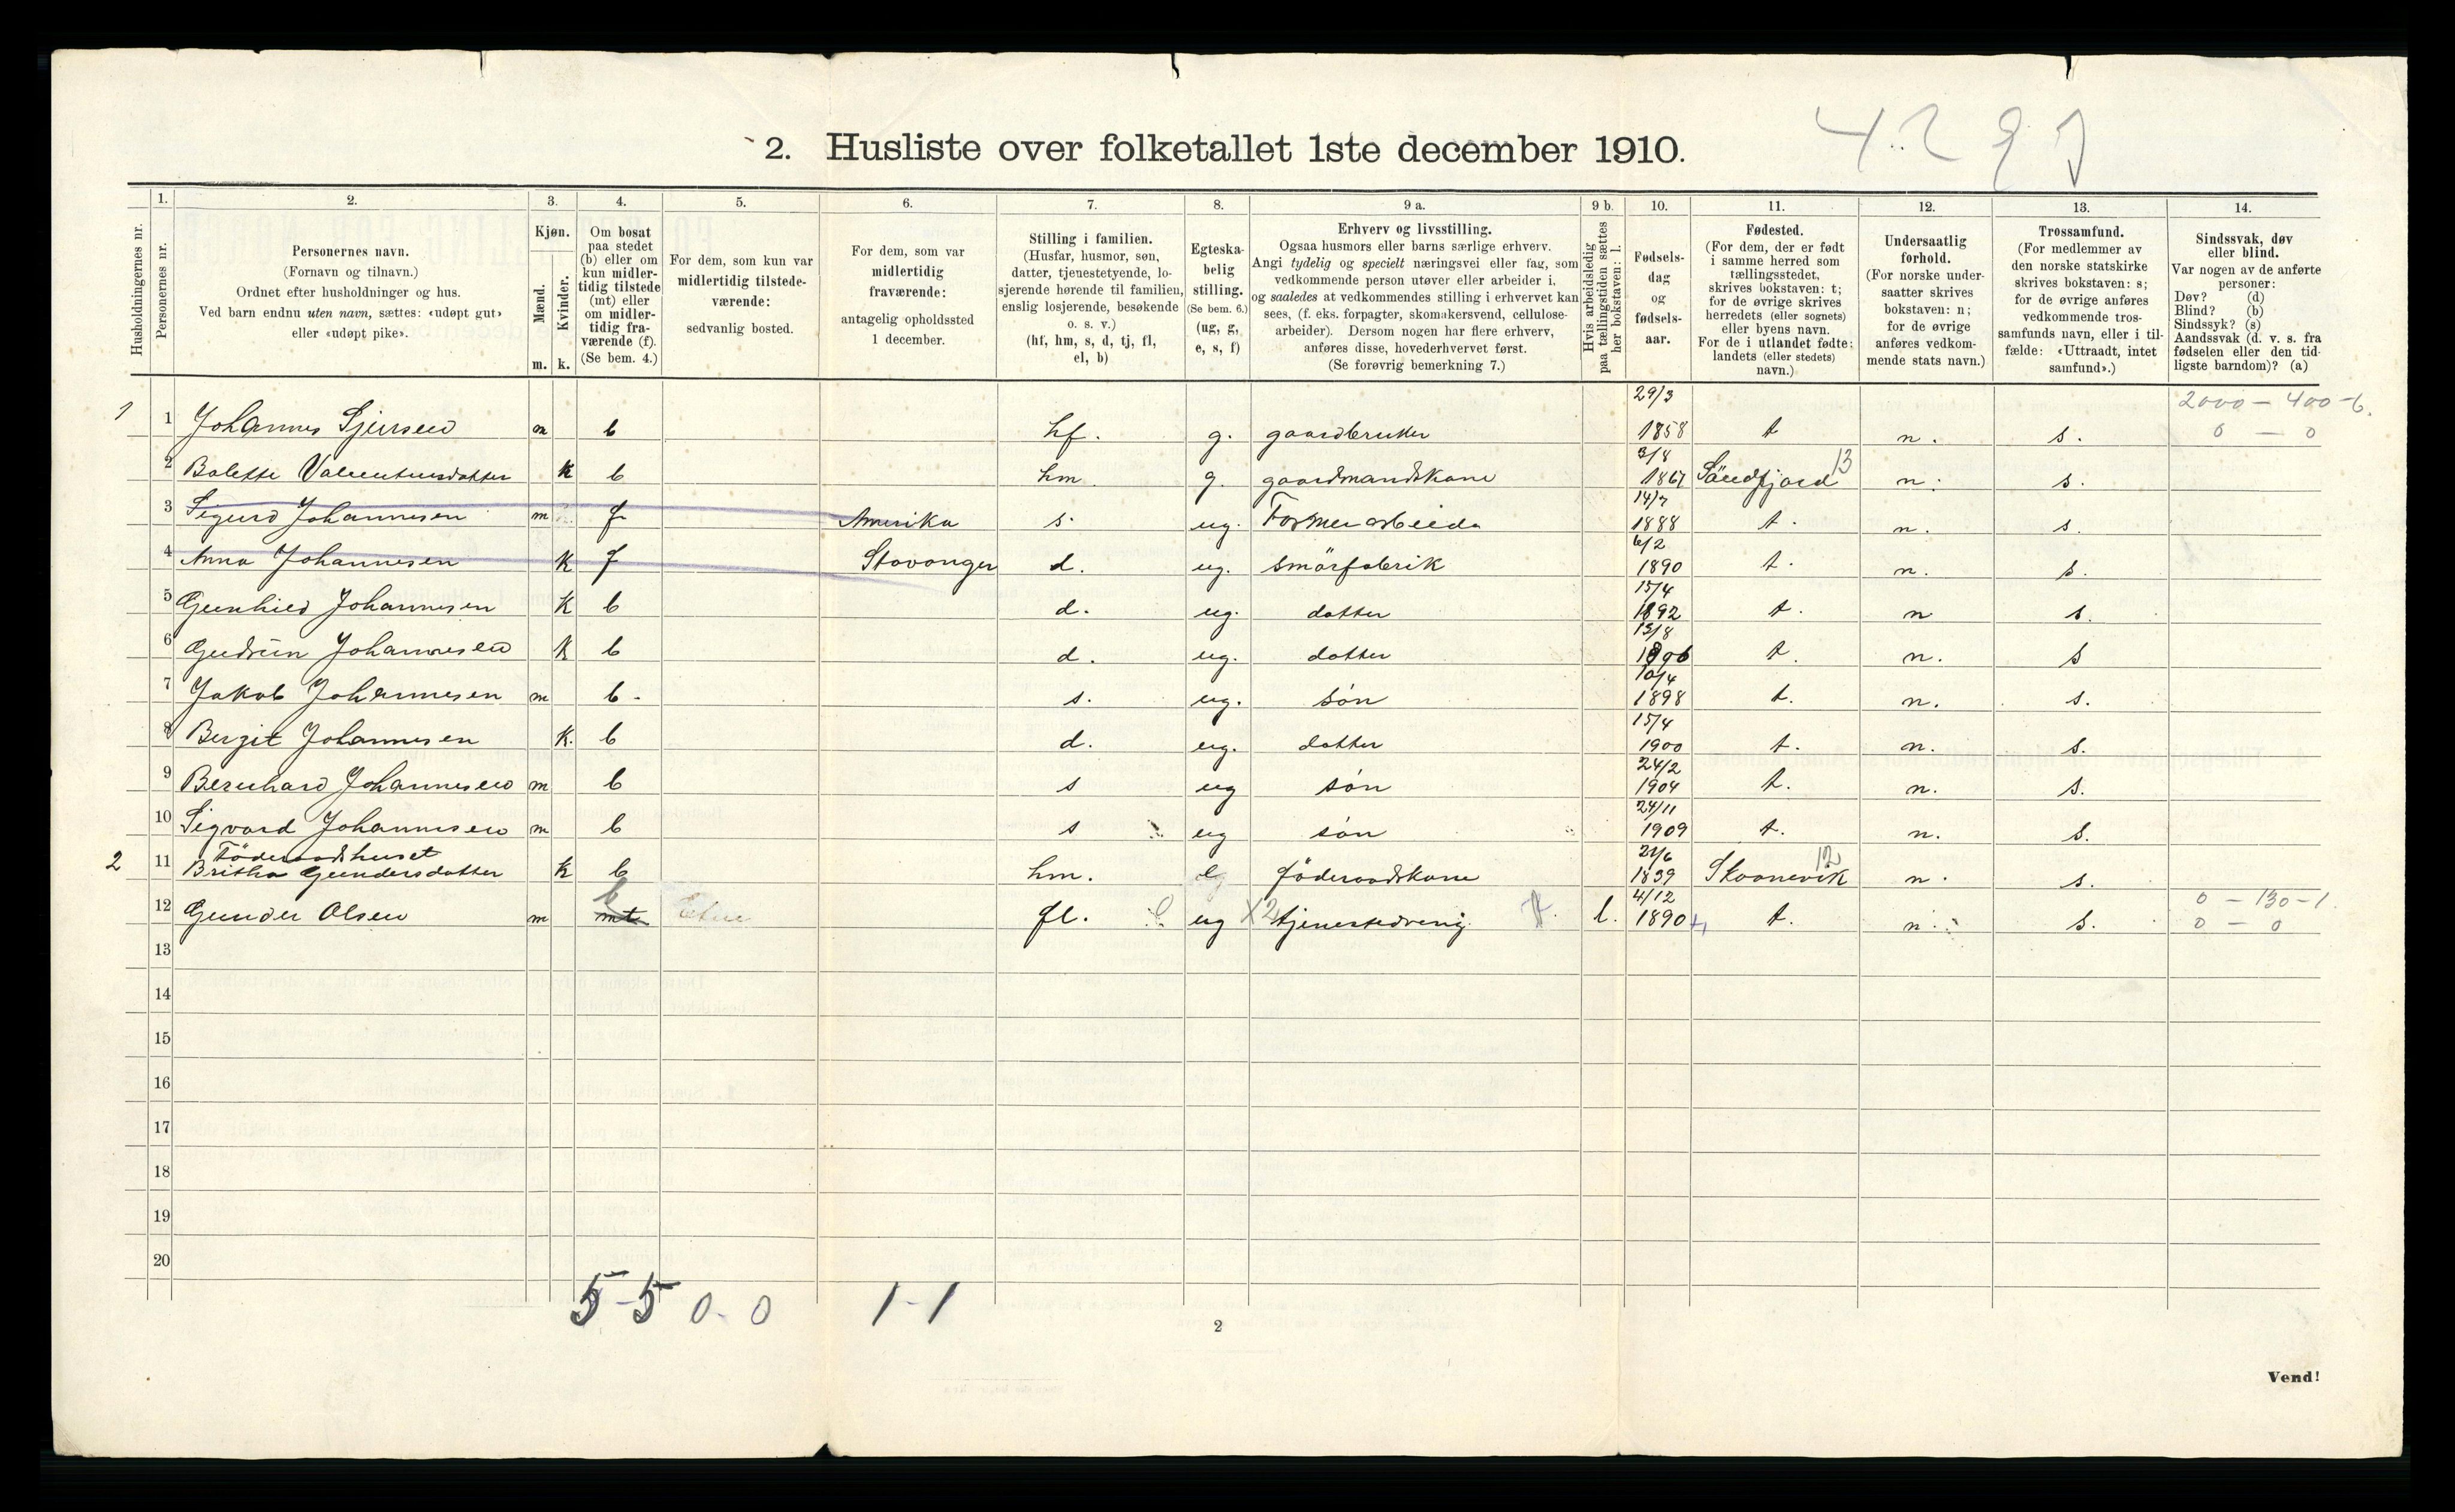 2. Husliste over folketallet 1ste december 1910.
1. 2. 3. 4. 5. 6. 7. 8. 9 a. 9 b. 10. 11. 12. 13. 14.
Husholdningernes nr.
Personernes nr.
Personernes navn.
(Fornavn og tilnavn.)
Ordnet efter husholdninger og hus.
Ved barn endnu uten navn, sættes: «udøpt gut»
eller «udøpt pike».
Kjøn.
Mænd.
Kvinder.
m. k.
Om bosat
paa stedet
(b) eller om
kun midler-
tidig tilstede
(mt) eller
om midler-
tidig fra-
værende (f).
(Se bem. 4.)
For dem, som kun var
midlertidig tilstede-
værende:
sedvanlig bosted.
For dem, som var
midlertidig
fraværende:
antagelig opholdssted
1 december.
Stilling i familien.
(Husfar, husmor, søn,
datter, tjenestetyende, lo-
sjerende hørende til familien,
enslig losjerende, besøkende
o. s. v.)
(hf, hm, s, d, tj, fl,
el, b)
Egteska-
belig
stilling.
(Se bem. 6.)
(ug, g,
e, s, f)
Erhverv og livsstilling.
Ogsaa husmors eller barns særlige erhverv.
Angi tydelig og specielt næringsvei eller fag, som
vedkommende person utøver eller arbeider i,
og saaledes at vedkommendes stilling i erhvervet kan
sees, (f. eks. forpagter, skomakersvend, cellulose-
arbeider). Dersom nogen har flere erhverv,
anføres disse, hovederhvervet først.
(Se forøvrig bemerkning 7.)
Hvis arbeidsledig
paa tællingstiden sættes
her bokstaven: l.
Fødsels-
dag
og
fødsels-
aar.
Fødested.
(For dem, der er født
i samme herred som
tællingsstedet,
skrives bokstaven: t;
for de øvrige skrives
herredets (eller sognets)
eller byens navn.
For de i utlandet fødte:
landets (eller stedets)
navn.)
Undersaatlig
forhold.
(For norske under-
saatter skrives
bokstaven: n;
for de øvrige
anføres vedkom-
mende stats navn.)
Trossamfund.
(For medlemmer av
den norske statskirke
skrives bokstaven: s;
for de øvrige anføres
vedkommende tros-
samfunds navn, eller i til-
fælde: «Uttraadt, intet
samfund».)
Sindssvak, døv
eller blind.
Var nogen av de anførte
personer:
Døv? (d)
Blind? (b)
Sindssyk? (s)
Aandssvak (d. v. s. fra
fødselen eller den tid-
ligste barndom)? (a)
29/3 2000 - 400 - 6.
1 1 Johannes Sjursen m b hf. g. gaardbruker 1858 t n. s. 0 - 0
3/8 13
2 Bolette Valentinsdatter k b hm. g. gaardmandskone 1867 Söndfjord n. s.
14/7
3 Sigurd Johannesen m f Amerika s. ug. Farmerarbeide 1888 t. n. s.
6/2
4 Anna Johannesen K f Stavanger d. ug. smörfabrik 1890 t. n. s.
15/4
5 Gunhild Johannesen K b d. ug. datter 1892 t. n s.
13/8
6 Gudrun Johannesen K b d. ug. datter 1896 t. n. s
10/4
7 Jakob Johannesen m b. s. ug. sön 1898 t. n. s.
15/4
8 Bergit Johannesen K. b d. ug. datter 1900 t. n. s.
24/2
9 Bernhard Johannesen m b s ug sön 1904 t. n. s.
24/11
10 Sigvard Johannesen m b s ug sön 1909 t. n. s.
Föderaadshuset 21/6 12
2 11 Britha Gundersdatter k b hm. e föderaadskone 1839 Skaanevik n. s.
b 4/12 0 - 130 - 1.
12 Gunder Olsen m mt Etne fl. ug tjenestedreng l. 1890 t. n. s. 0 - 0
13
14
15
16
17
18
19
20
5 - 5 0 - 0 1 - 1
2
Vend!